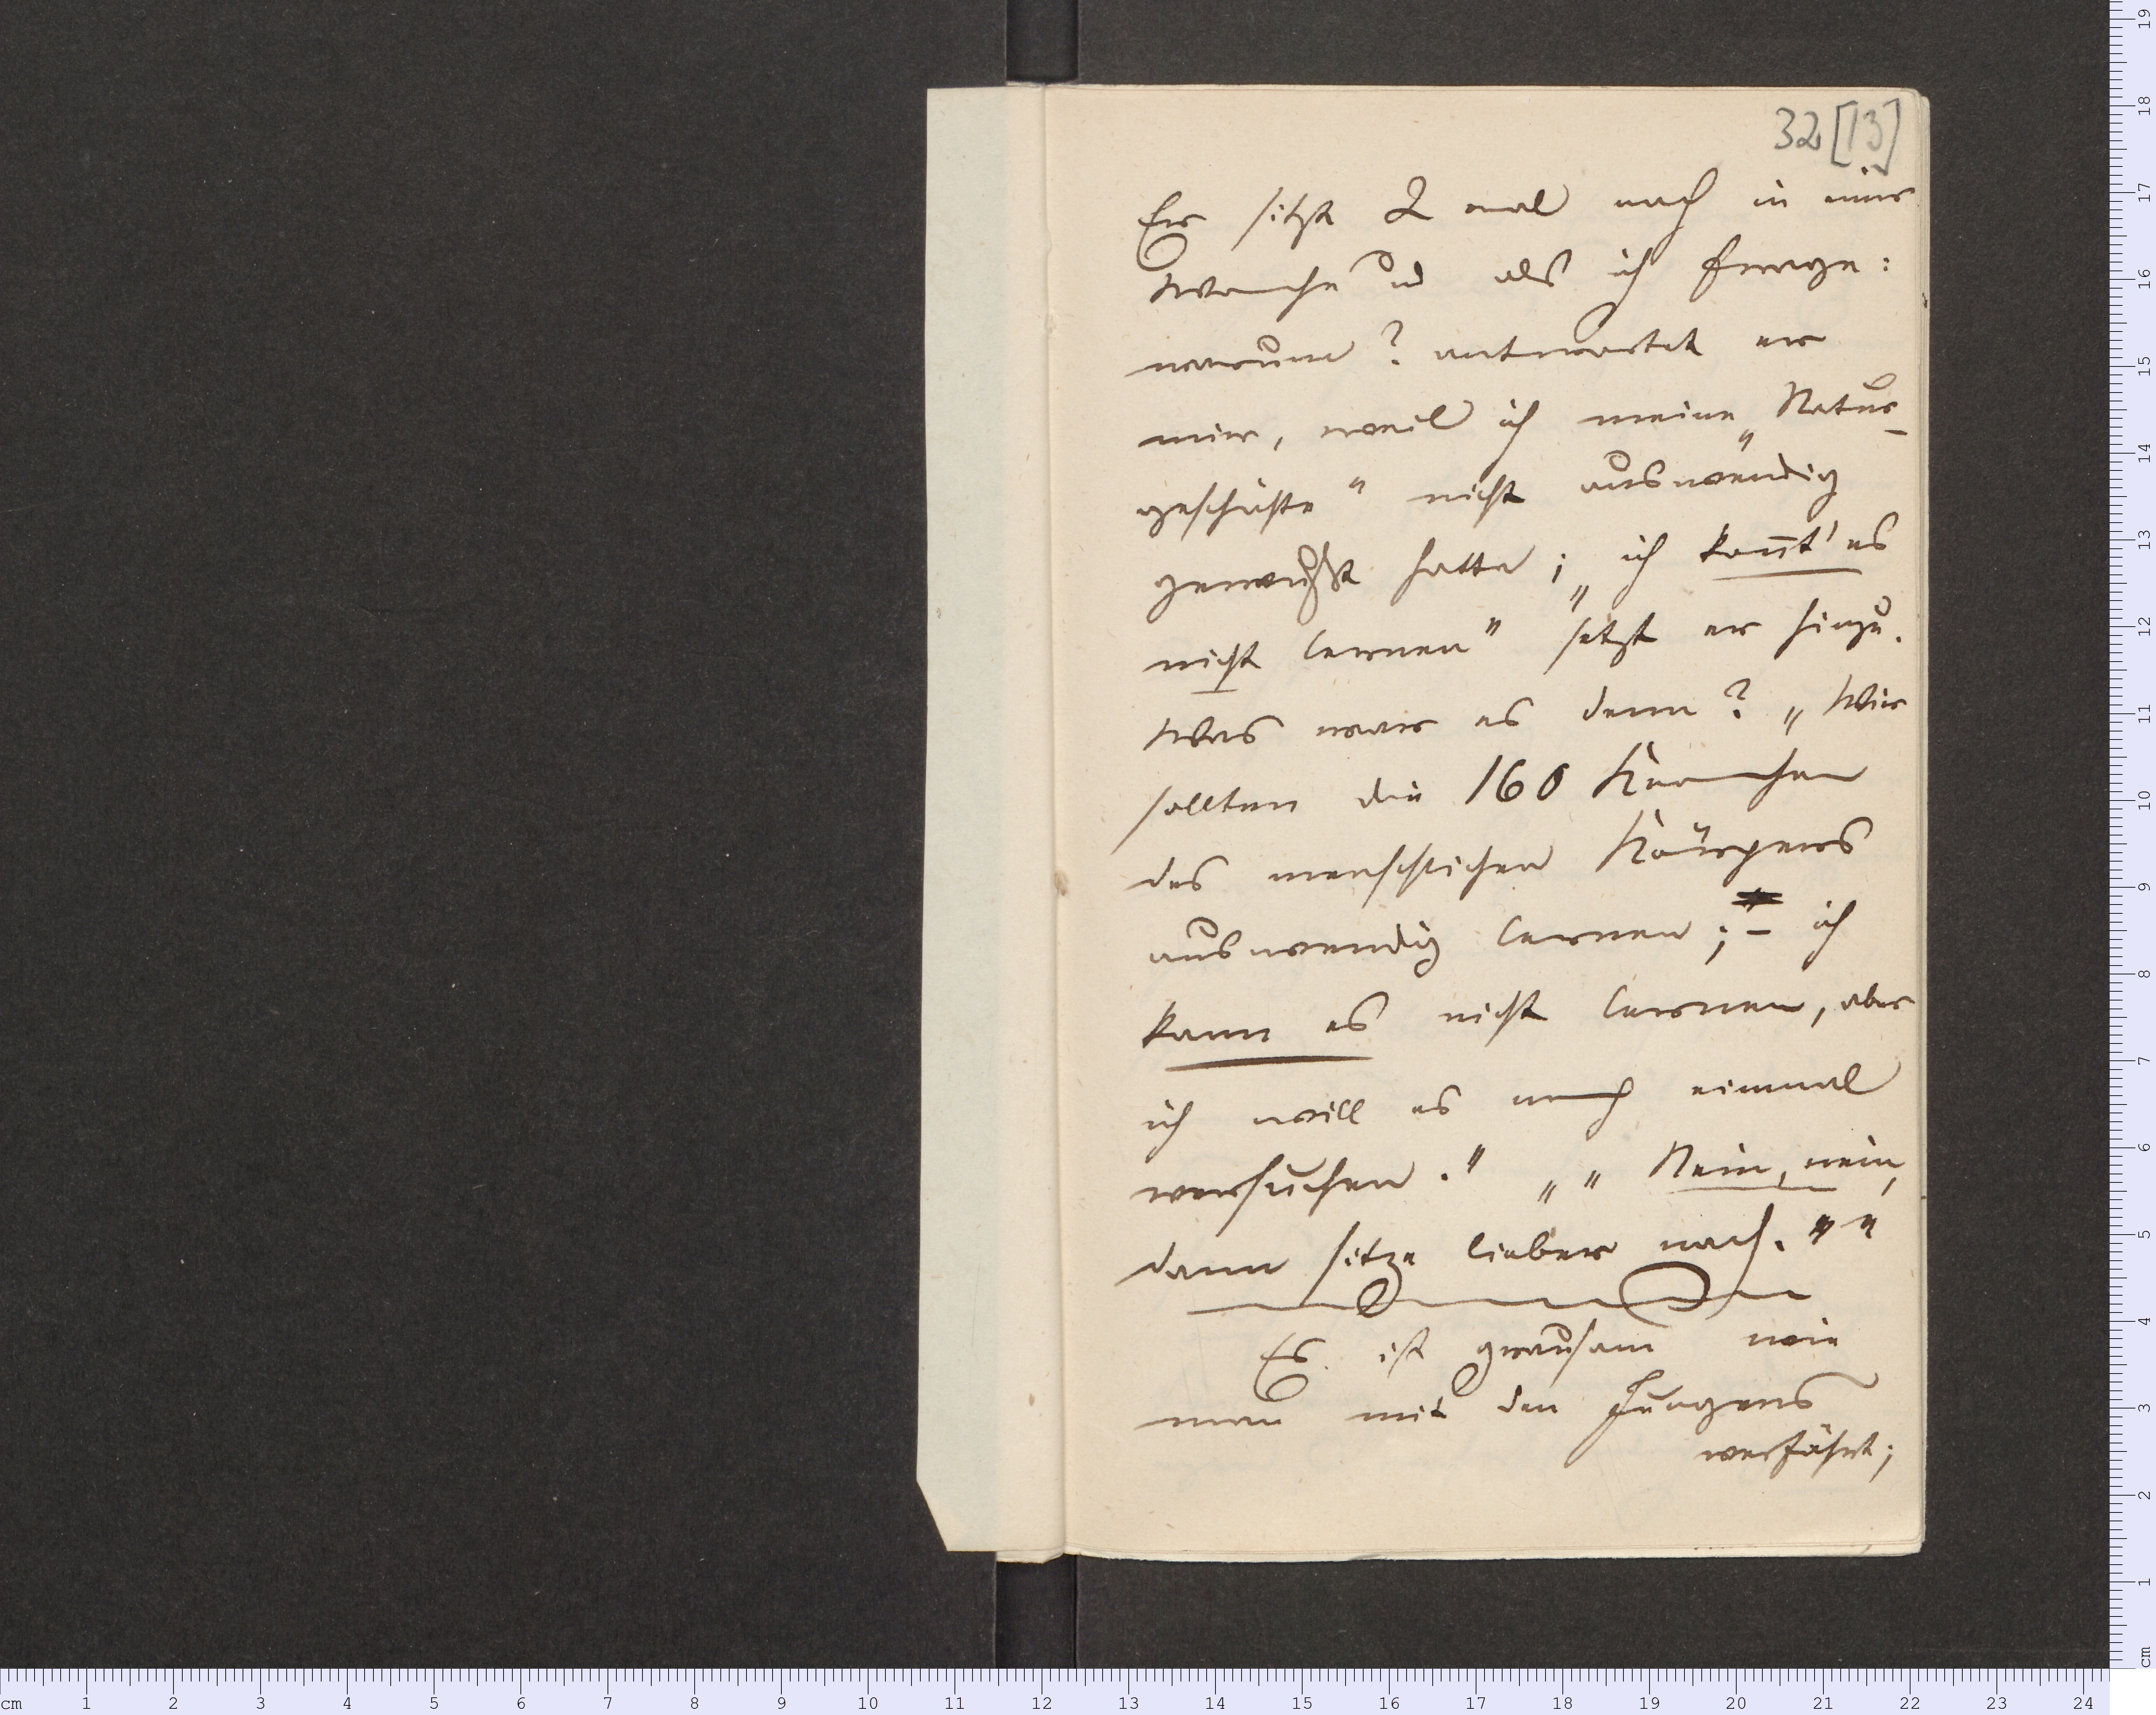 32 [13]
Er sitzt 2 mal nach in einer
Woche u als ich frage:
warum? antwortet er
mir, weil ich meine „Natur-
geschichte" nicht auswendig
gewußt hatte; „ich kon̄t' es
nicht lernen" setzt er hinzu.
Was war es denn? „Wir
sollten die 160 Knochen
des menschlichen Körpers
auswendig lernen; – ich
kann es nicht lernen, aber
ich will es noch einmal
versuchen." „„Nein, nein,
dann sitze lieber nach.""
Es ist grausam wie
man mit den Jungens
verfährt;